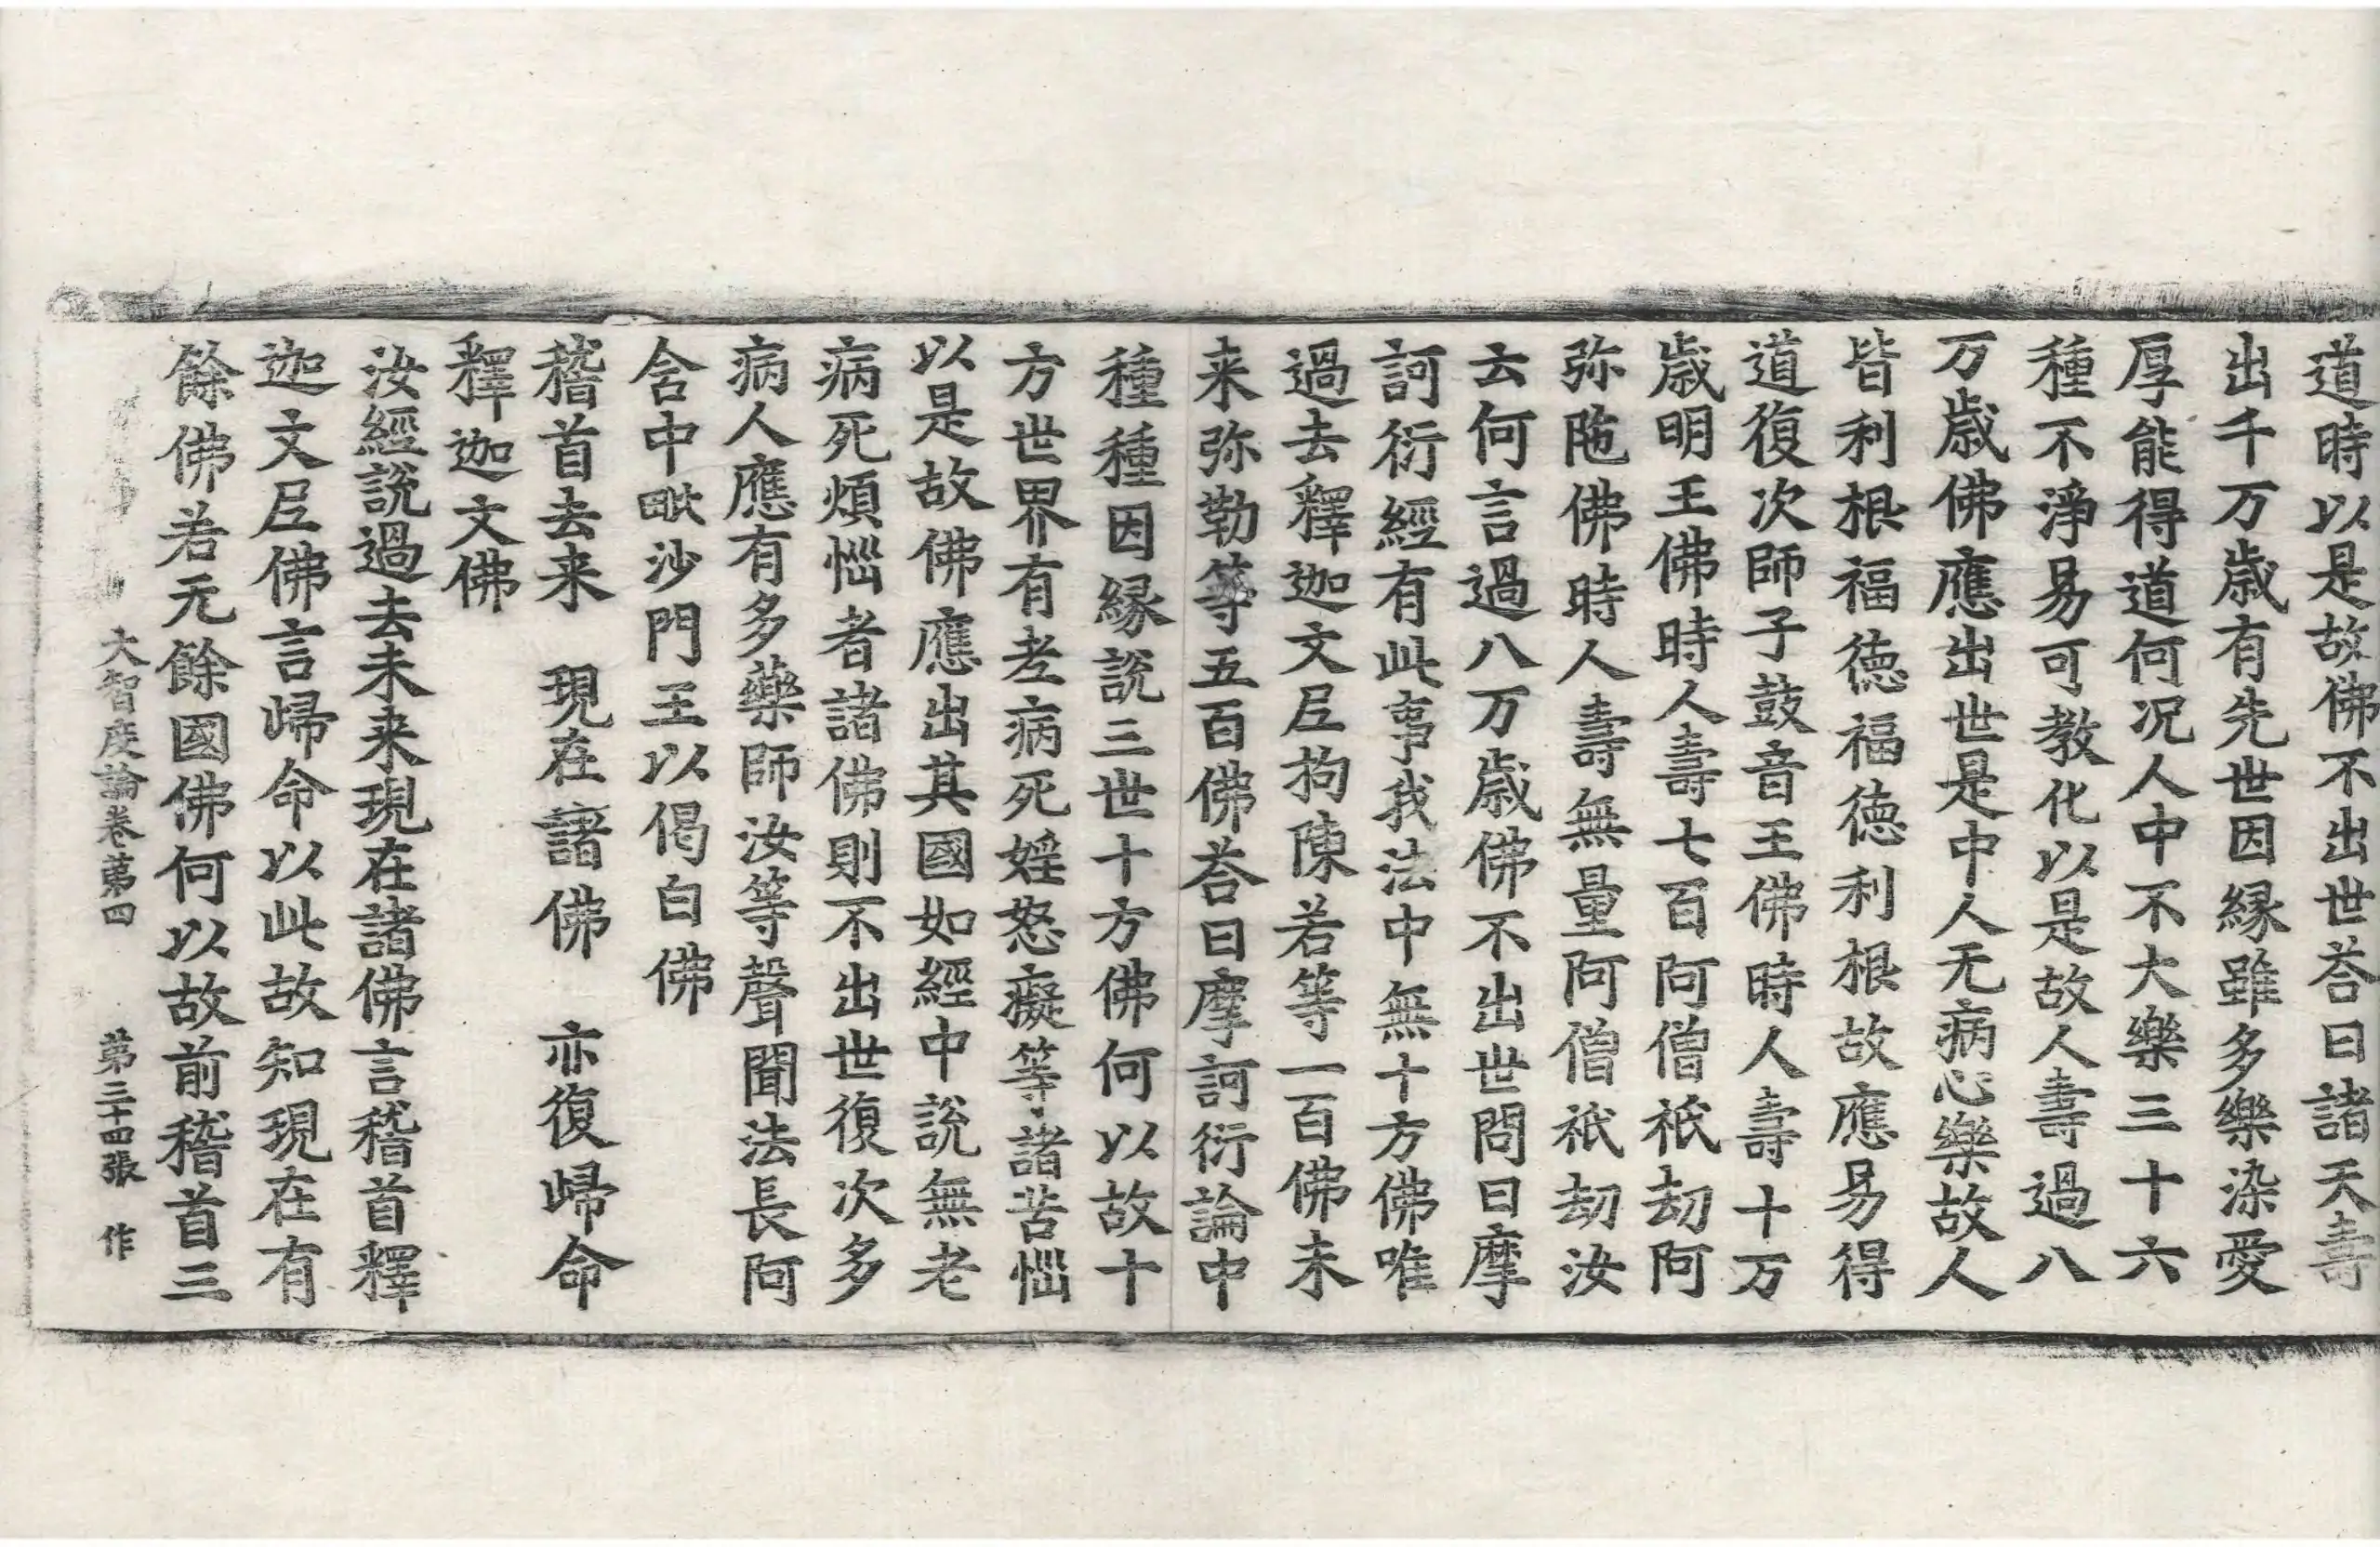 道時以是故佛不出世荅曰諸天壽
出千万歳有先世因縁雖多樂染愛
厚能得道何况人中不大樂三十六
種不淨易可教化以是故人壽過八
万歳佛應出世是中人无病心樂故人
皆利根福徳福徳利根故應易得
道復次師子鼓音王佛時人壽十万
歳明王佛時人壽七百阿僧祇劫阿
弥陁佛時人壽無量阿僧祇劫汝
云何言過八万歳佛不出世問曰摩
訶衍經有此事我法中無十方佛唯
過去釋迦文𡰱拘陳若等一百佛未
来弥勒等五百佛荅曰摩訶衍論中
種種因縁說三世十方佛何以故十
方世界有老病死婬怒癡等諸苦惱
以是故佛應出其國如經中說無老
病死煩惱者諸佛則不出世復次多
病人應有多藥師汝等聲聞法長阿
含中毗沙門王以偈白佛
稽首去来　現在諸佛　亦復歸命
釋迦文佛
汝經說過去未来現在諸佛言稽首釋
迦文𡰱佛言歸命以此故知現在有
餘佛若无餘國佛何以故前稽首三
大智度論卷第四　第三十四張　作